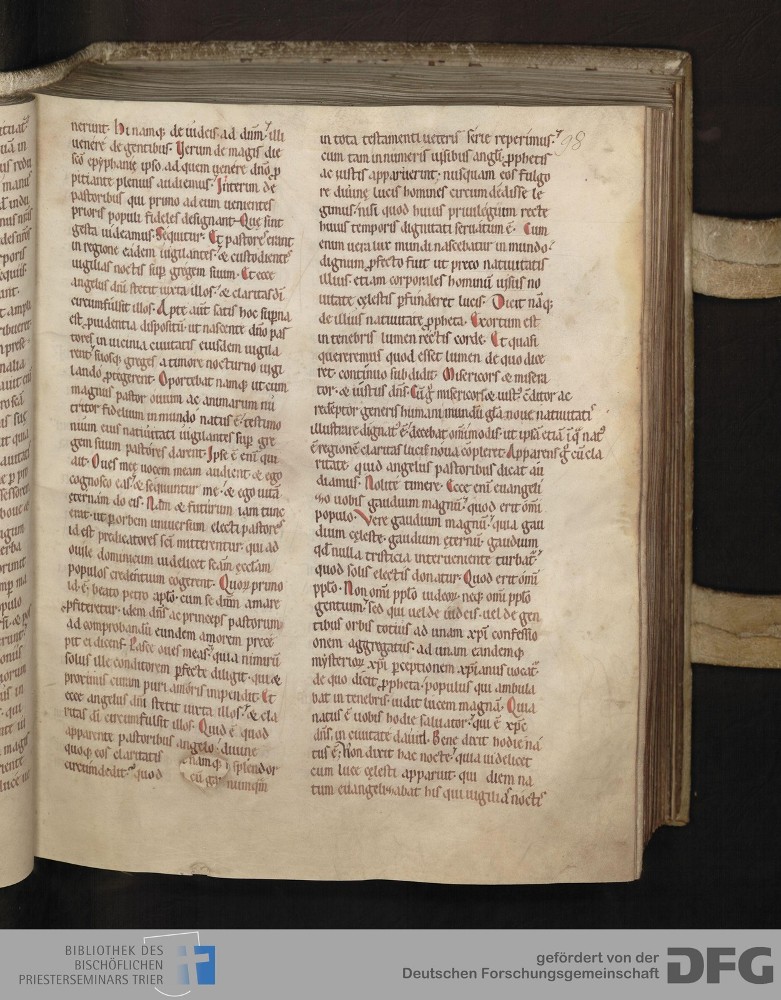 nerunt. Hi namq; de iudeis ad dnm̄. illi
uenere de gentibus. Verum de magis die
sc̄o epyphanię ipso ad quem uenere dn̄o ꝓ
pitiante plenius audiemus. Interim de
pastoribus qui primo ad eum uenientes
prioris populi fideles designant. Quę sint
gesta uideamus. Sequitur. Et pastores erant
in regione eadem uigilantes. & custodientes
uigilias noctis sup̄ gregem suum. Et ecce
angelus dn̄i stetit iuxta illos. & claritas dī
circumfulsit illos. Apte aūt satis hoc sup̄na
est ꝓuidentia dispositū ut nascente dn̄o pas
tores in uicinia ciuitatis eiusdem uigila
rent. suosq; greges a timore nocturno uigi
lando ꝓtegerent. Oportebat namq; ut cum
magnus pastor ouium ac animarum nu
tritor fidelium in mundo natus ē. testimo
nium eius natiuitati uigilantes sup̄ gre
gem suum pastores darent. Ipse ē enī qui
ait. Oues meę uocem meam audient. & ego
cognosco eas. & sequuntur me. & ego uitā
ęternam do eis. Nam & futurum iam tunc
erat. ut ꝑ orbem uniuersum electi pastores
id est predicatores sc̄i mitterentur. qui ad
ouile dominicum uidelicet sc̄am ęcctam
populos credentium cogerent. Quoꝝ primo
id ē beato petro apl̄o. cum se dnm̄ amare
ꝓfiteretur. idem dn̄s ac princeps pastorum
ad comprobandū eundem amorem precę
pit ei dicens. Pasce oues meas. quia nimirū
solus ille conditorem ꝑfecte diligit. qui &
proximis curam puri amoris impendit. Et
ecce angelus dn̄i stetit iuxta illos. & cla
ritas dī circumfulsit illos. Quid ē quod
apparente pastoribus angelo. diuinę
quoq; eos claritatis namq; splendor
circumdedit. quod numqm̄
98
in tota testamenti ueteris serie reperimus.
cum tam innumeris uisibus angli ꝓphetis
ac iustis apparuerint. nusquam eos fulgo
re diuinę lucis homines circum dedisse le
gimus. nisi quod huius priuilegium recte
huius temporis dignitati seruatum ē. Cum
enim uera lux mundi nascebatur in mundo.
dignum ꝓfecto fuit ut preco natiuitatis
illius etiam corporales hominū uisus no
uitate cęlestis ꝑfunderet lucis. Dicit nāq;
de illius natiuitate ꝓpheta. Exortum est
in tenebris lumen rectis corde. Et quasi
quereremus quod esset lumen de quo dice
ret. continuo subdidit. Misericors & misera
tor. & iustus dn̄s. Cū g̊ misericors & iust' cōditor ac
redēptor generis humani mundū gl̄a nouę natiuitatis
illustrare dignat' ē. decebat omīmodis. ut ipsā etiā ī q̄ nat'
ē regionē claritas lucis noua cōpleret. Apparens g̊ cū cla
ritate quid angelus pastoribus dicat au
diamus. Nolite timere. Ecce enī euangeli
zo uobis gaudium magnū. quod erit omī
populo. Vere gaudium magnū. quia gau
dium cęleste. gaudium ęternū. gaudium
qd̄ nulla tristicia interueniente turbat'.
quod solis electis donatur. Quod erit omī
pplo. Non omī pplo iudeoꝝ. neq; omī pplo
gentium. sed qui uel de iudeis. uel de gen
tibus orbis totius ad unam xp̄i confessio
onem aggregatus. ad unam eandemq;
mysterioꝝ xp̄i ꝑceptionem xp̄ianus uocat'.
de quo dicit ꝓpheta. populus qui ambula
bat in tenebris. uidit lucem magnā. Quia
natus ē uobis hodie saluator. qui ē xp̄c
dn̄s. in ciuitate dauid. Bene dixit hodie na
tus ē. Non dixit hac nocte. quia uidelicet
cum luce cęlesti apparuit. qui diem na
tum euangelizabat his qui uigilias noctis
BIBLIOTHEK DES
BISCHÖFLICHEN
PRIESTERSEMINARS TRIER
gefördert von der
Deutschen Forschungsgemeinschaft
DFG